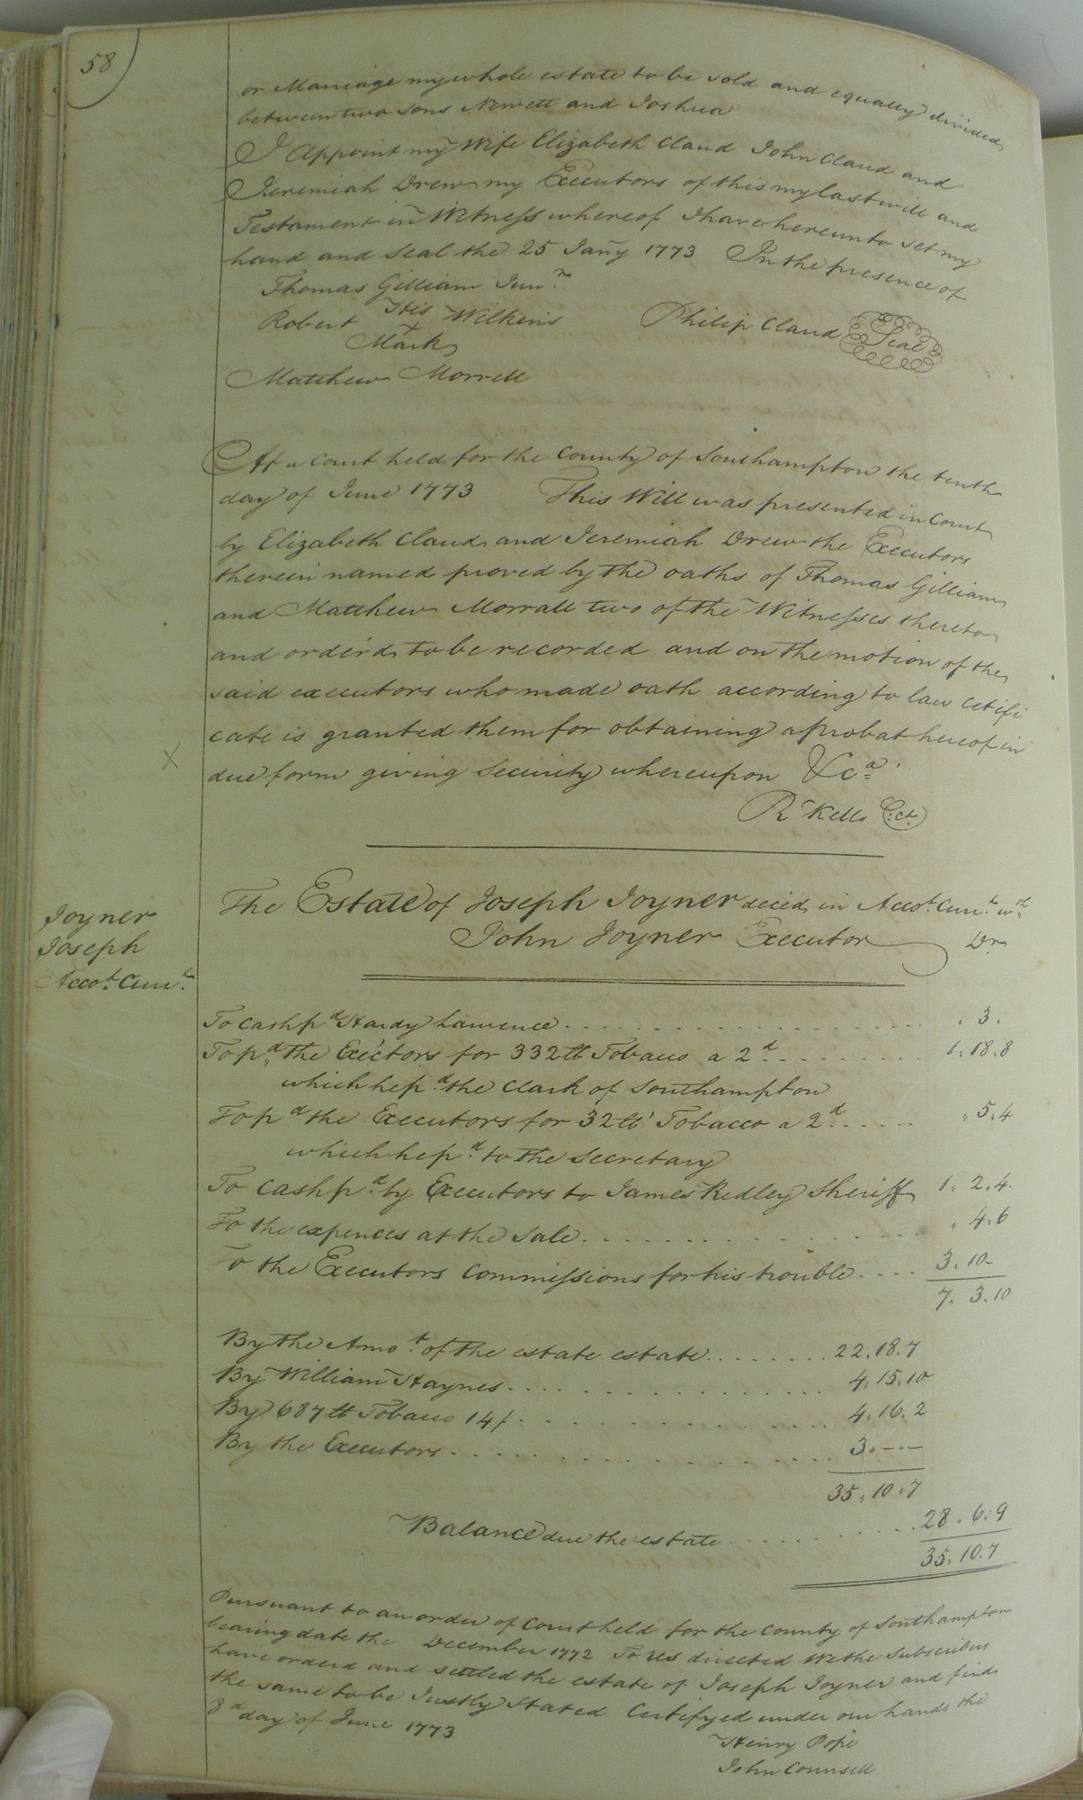 58
or Marriage my whole estate to be sold and equally divided
between two sons Newett and Joshua
I Appoint my Wife Elizabeth Claud John Claud and
Jeremiah Drew my Executors of this my last will and
Testament in Witness whereof I have hereunto set my
hand and seal the 25 Jany 1773 In the presence of
Thomas Gilliam Junr.
Robert His Wilkins Philip Claud Seal
Mark
Matthew Morrell
At a Court held for the County of Southampton the tenth
day of June 1773 This Will was presented in Court
by Elizabeth Claud and Jeremiah Drew the Executors
therein named proved by the oaths of Thomas Gilliam
and Matthew Morrall two of the Witnesses thereto
and orderd to be recorded and on the motion of the
said executors who made oath according to law cetifi
cate is granted them for obtaining a probat hereof in
X
due form giving security whereupon &ca.
R Kello C:ct.
Joyner
Joseph
Accot. Currt.
The Estate of Joseph Joyner deced in Accot. Currt. wth.
John Joyner Executor Dr
To cash pd Hardy Lawrence . 3 .
To pd. the Exictors for 332 tt Tobaco a 2d 1.18.8
which he pd. the Clark of Southampton
To pd the Executors for 32 tt Tobacco a 2d . 5.4
which he pd. to the Secretary
To cash pd. by Executors to James Ridley Sheriff 1. 2.4.
To the expences at the sale . 4.6
To the Executors Commissions for his trouble 3.10-
7. 3.10
By the Amot. of the estate estate 22.18.7
By William Haynes 4.15.10
By 687 tt Tobaco 14/ 4.16.2
By the Executors 3.-.-
35.10.7
Balance due the estate 28.6.9
35.10.7
Pursuant to an order of Court held for the County of Southampton
bearing date the December 1772 To Us directed We the Subscribers
have orderd and settled the estate of Joseph Joyner and find
the same to be Justly Stated Certifyed under our hands this
day of June 1773
Henry Pope
John Counsill